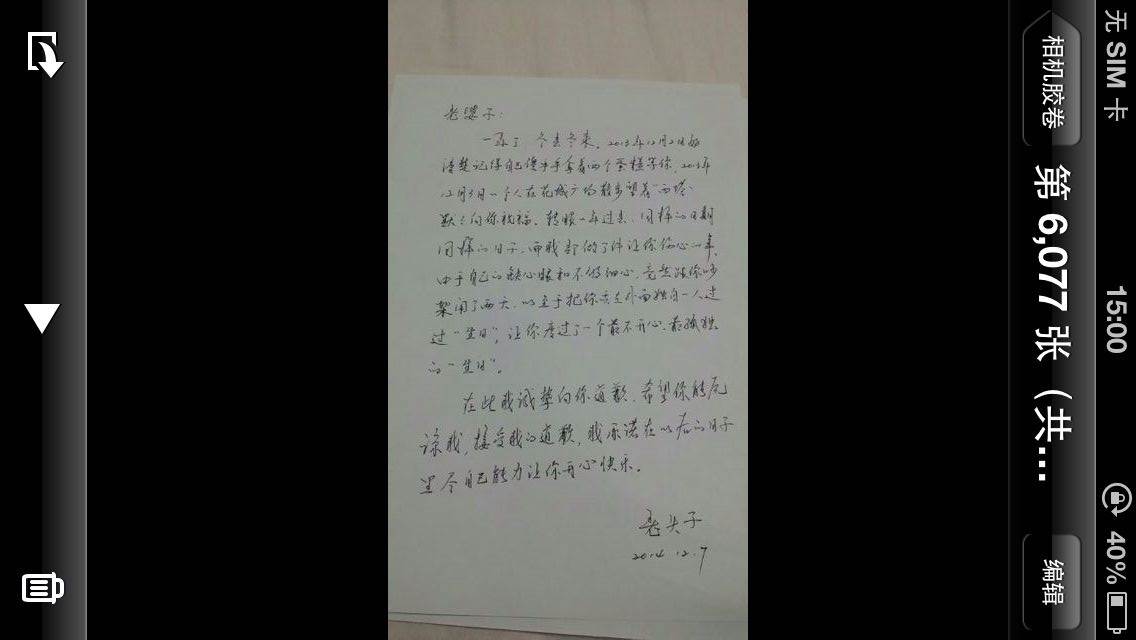 无 SIM 卡
15:00
40%
相机胶卷
第 6,077 张（共...
编辑
老婆子：
一年了，冬去冬来。2013年12月2日我
清楚记得自己傻乎乎拿着两个蛋糕等你，2013年
12月3日一个人在花城广场散步望着"西塔"
默默向你祝福。转眼一年过去，同样的日期
同样的日子，而我却做了件让你伤心的事。
由于自己的缺心眼和不够细心，竟然跟你吵
架闹了两天，以至于把你丢在外面独自一人过
过"生日"，让你度过了一个最不开心、最孤独
的"生日"。
在此我诚挚向你道歉，希望你能原
谅我，接受我的道歉，我承诺在以后的日子
里尽自己能力让你开心快乐。
老头子
2014.12.7